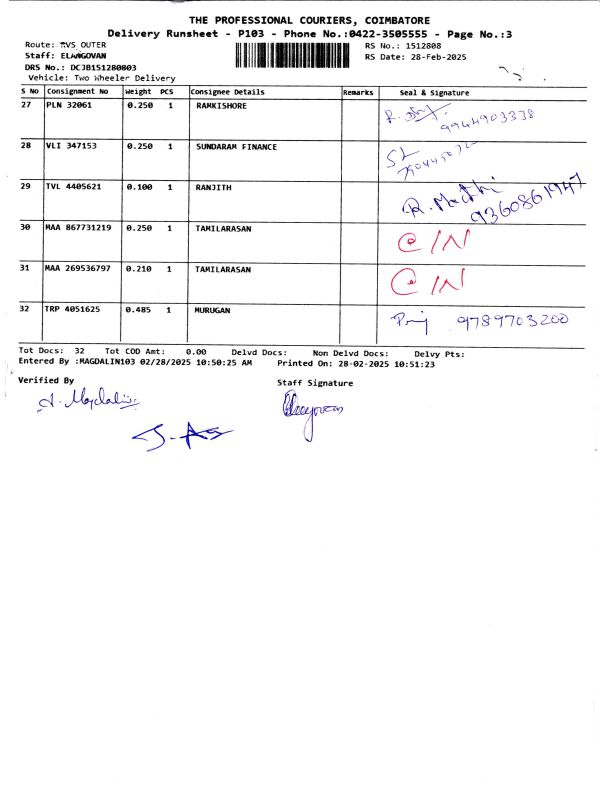 THE PROFESSIONAL COURIERS, COIMBATORE
Delivery Runsheet - P103 - Phone No.:0422-3505555 - Page No.:3
Route: RVS OUTER
RS No.: 1512808
Staff: ELANGOVAN
RS Date: 28-Feb-2025
DRS No.: DCJB151280803
Vehicle: Two Wheeler Delivery
S No Consignment No Weight PCS Consignee Details Remarks Seal & Signature
27 PLN 32061 0.250 1 RAMKISHORE
9944903338
28 VLI 347153 0.250 1 SUNDARAM FINANCE
29 TVL 4405621 0.100 1 RANJITH R. Madhi
9360861947
30 MAA 867731219 0.250 1 TAMILARASAN C/N
31 MAA 269536797 0.210 1 TAMILARASAN C/N
32 TRP 4051625 0.485 1 MURUGAN 9789703200
Tot Docs: 32 Tot COD Amt: 0.00 Delvd Docs: Non Delvd Docs: Delvy Pts:
Entered By :MAGDALIN103 02/28/2025 10:50:25 AM Printed On: 28-02-2025 10:51:23
Verified By Staff Signature
A. Magdalin
Elangovan